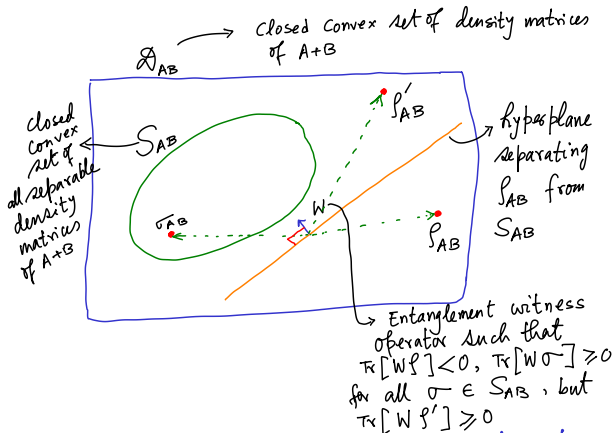 closed convex set of density matrices
of A+B
𝒟_AB
closed
convex
set of
all separable
density
matrices
of A+B
S_AB
ρ'_AB
hyperplane
separating
ρ_AB from
S_AB
σ_AB
W
ρ_AB
Entanglement witness
operator such that
Tr[Wρ]<0, Tr[Wσ]⩾0
for all σ ∈ S_AB, but
Tr[Wρ']⩾0